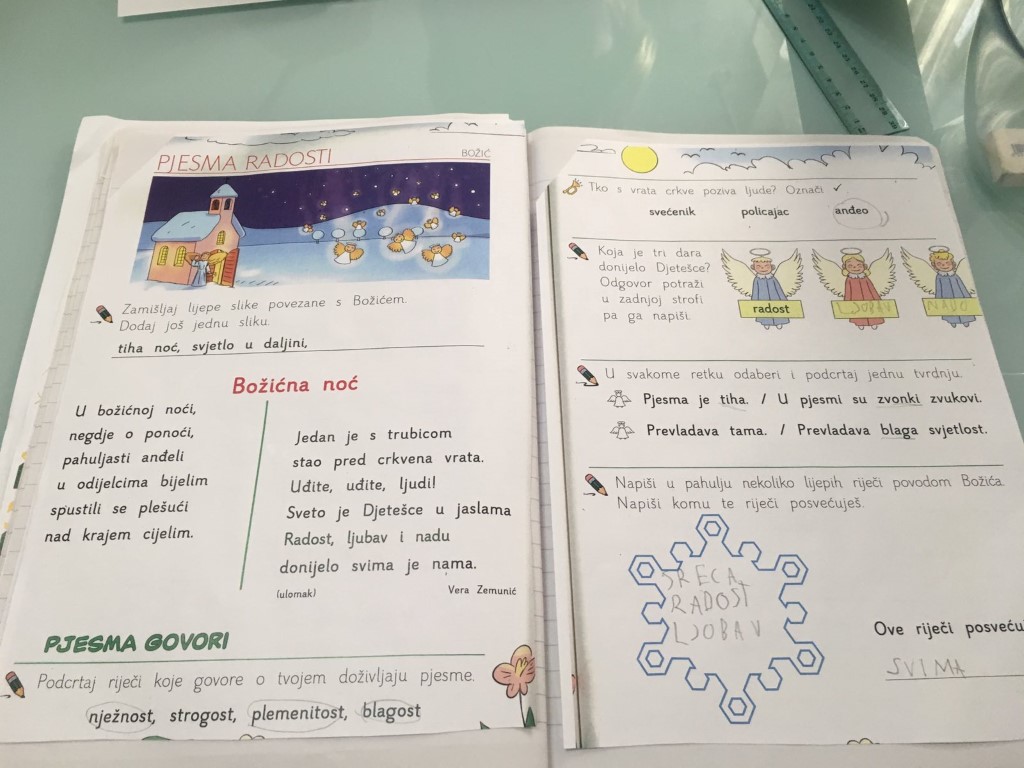 PJESMA RADOSTI
BOŽIĆ
Zamišljaj lijepe slike povezane s Božićem.
Dodaj još jednu sliku.
tiha noć, svjetlo u daljini,
Božićna noć
U božićnoj noći,
negdje o ponoći,
pahuljasti anđeli
u odijelcima bijelim
spustili se plešući
nad krajem cijelim.
Jedan je s trubicom
stao pred crkvena vrata.
Uđite, uđite, ljudi!
Sveto je Djetešce u jaslama
Radost, ljubav i nadu
donijelo svima je nama.
(ulomak)
Vera Zemunić
PJESMA GOVORI
Podcrtaj riječi koje govore o tvojem doživljaju pjesme.
nježnost, strogost, plemenitost, blagost
Tko s vrata crkve poziva ljude? Označi ✓
svećenik policajac anđeo
Koja je tri dara
donijelo Djetešce?
Odgovor potraži
u zadnjoj strofi
pa ga napiši.
radost
LJUBAV
NADO
U svakome retku odaberi i podcrtaj jednu tvrdnju.
Pjesma je tiha. / U pjesmi su zvonki zvukovi.
Prevladava tama. / Prevladava blaga svjetlost.
Napiši u pahulju nekoliko lijepih riječi povodom Božića.
Napiši komu te riječi posvećuješ.
SREĆA,
RADOST
LJOBAV
Ove riječi posveću
SVIMA